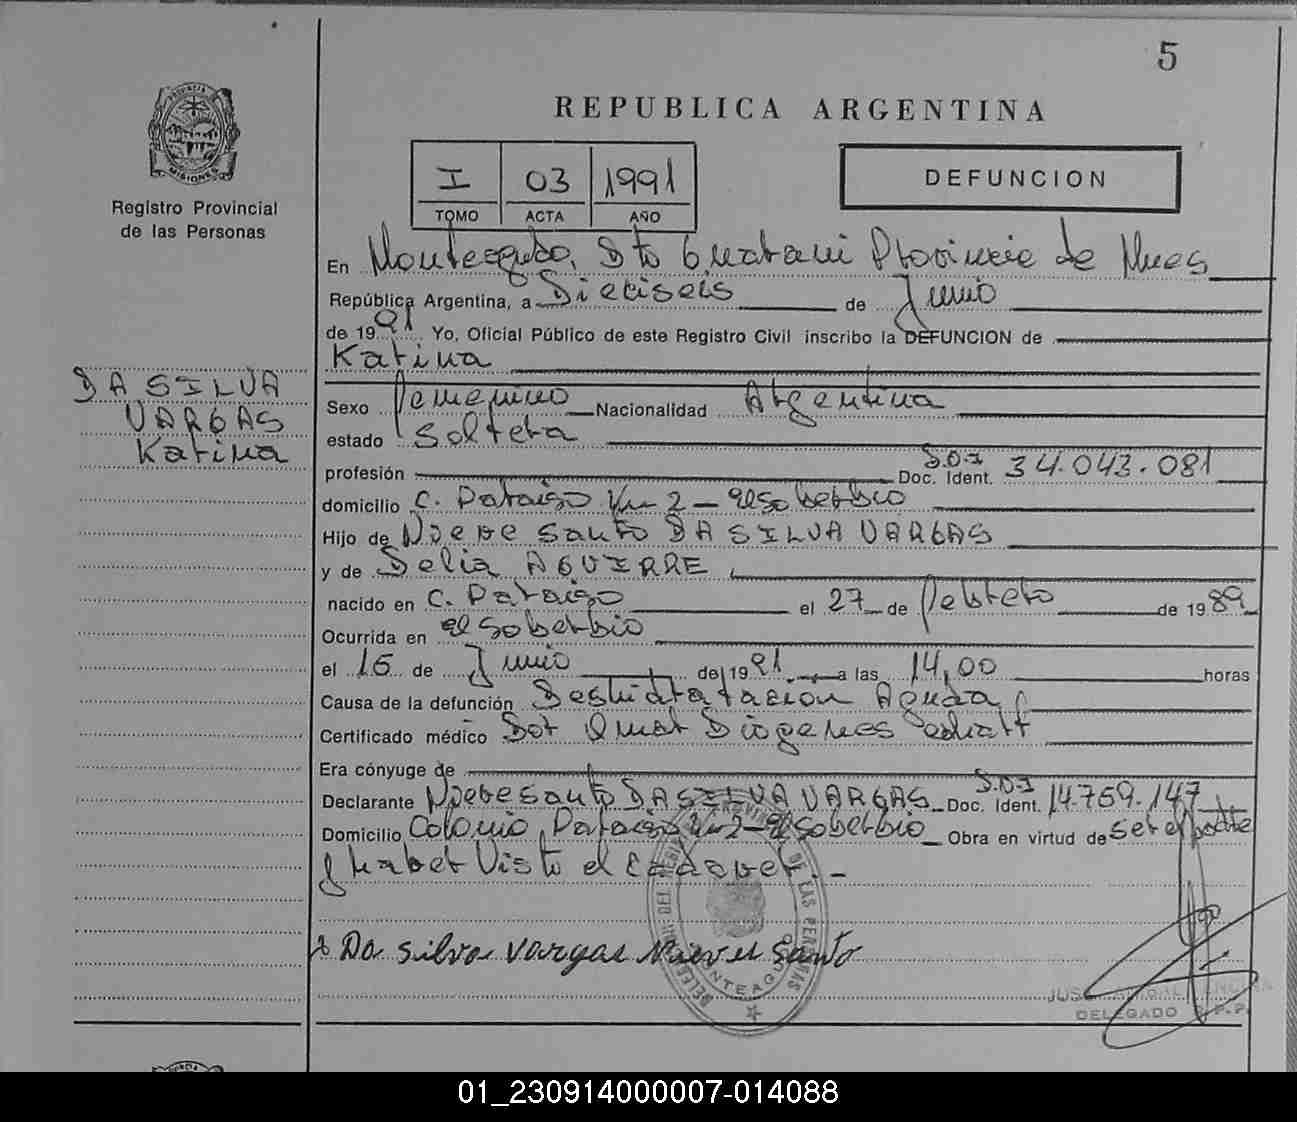 5
REPUBLICA ARGENTINA
PROVINCIA DE
MISIONES
Registro Provincial
de las Personas
I 03 1991
TOMO ACTA AÑO
DEFUNCION
En Monteagudo, Dto Guarani Provincia de Mnes
República Argentina, a Dieciseis de Junio
de 1991 Yo, Oficial Público de este Registro Civil inscribo la DEFUNCION de
Katina
DA SILVA
VARGAS
Katina
Sexo Femenino Nacionalidad Argentina
estado Soltera
profesión Doc. Ident. D.N.I 34.043.081
domicilio C. Paraiso Km 2 - El Soberbio
Hijo de Nieve Santo DA SILVA VARGAS
y de Delia AGUIRRE
nacido en C. Paraiso el 27 de Febrero de 1989
Ocurrida en El Soberbio
el 16 de Junio de 1991 a las 14,00 horas
Causa de la defunción Deshidratacion Aguda
Certificado médico Dor Omar Diogenes
Era cónyuge de
Declarante Nieve Santo DA SILVA VARGAS Doc. Ident. D.N.I 14.759.147
Domicilio Colonia Paraiso Km 2 - El Soberbio Obra en virtud de ser el padre
y haber Visto el Cadaver. -
Da Silva Vargas Nieve Santo
DELEGADO R.P.P.
01_230914000007-014088